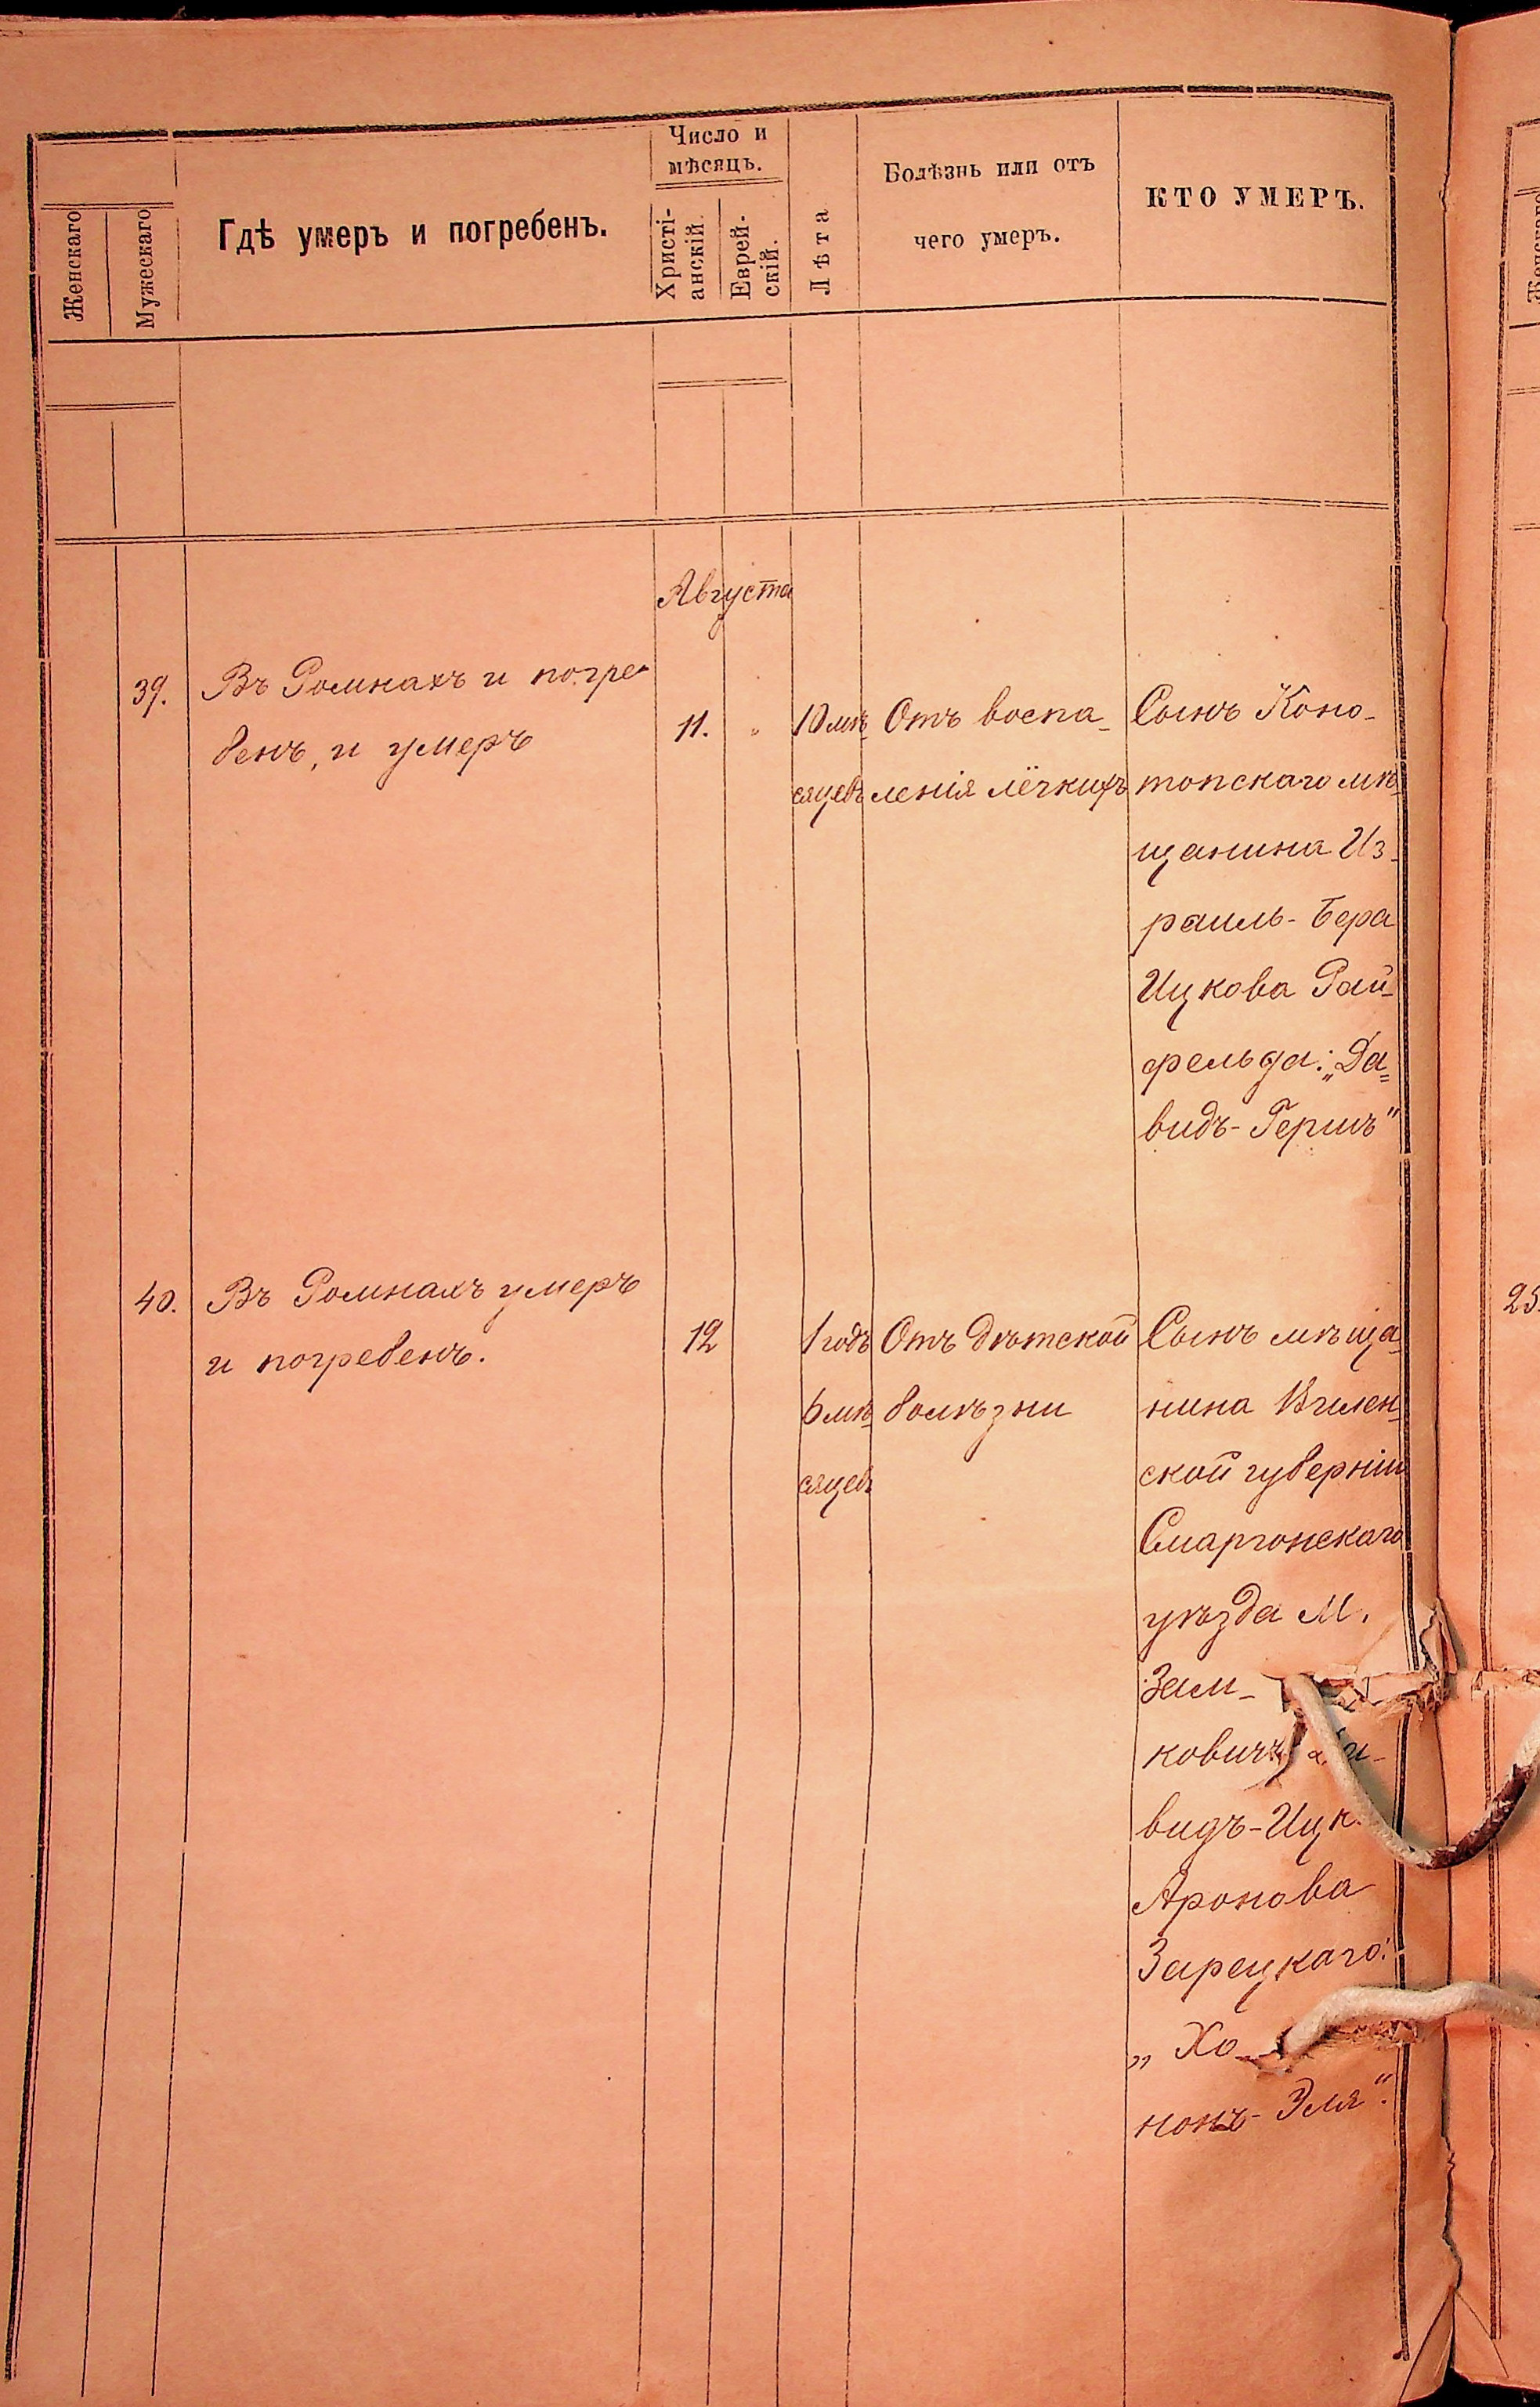 Женскаго
Мужескаго
Гдѣ умеръ и погребенъ.
Число и
мѣсяцъ.
Христі-
анскій.
Еврей-
скій.
Лѣта
Болѣзнь или отъ
чего умеръ.
КТО УМЕРЪ.
Августа
39.
Въ Ромнахъ и погре-
бенъ, и умеръ
11.
"
10 мѣ-
сяцевъ
Отъ воспа-
ленія лёгкихъ
Сынъ Коно-
топскаго мѣ-
щанина Из-
раиль-Бера
Ицкова Рай-
фельда: „Да-
видъ-Гершъ"
40.
Въ Ромнахъ умеръ
и погребенъ.
12
1 годъ
6 мѣ-
сяцевъ
Отъ дѣтской
болѣзни
Сынъ мѣща-
нина Вилен-
ской губерніи
Сморгонскаго
уѣзда М.
Зам-
видъ-Ицк
Аронова
Зарецкаго:
„Хо-
нонъ-Эля".
25